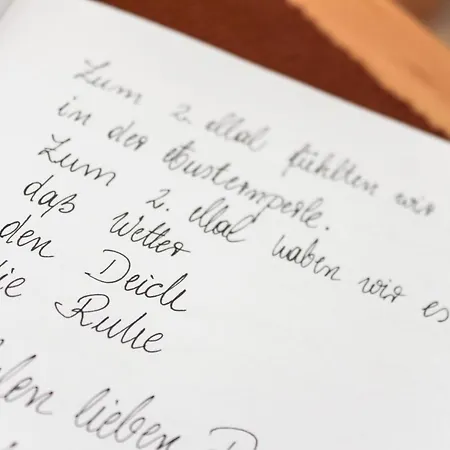 Zum 2. Mal fühlten wir
in der Austernperle.
Zum 2. Mal haben wir es
daß Wetter
den Deich
die Ruhe
len lieben D